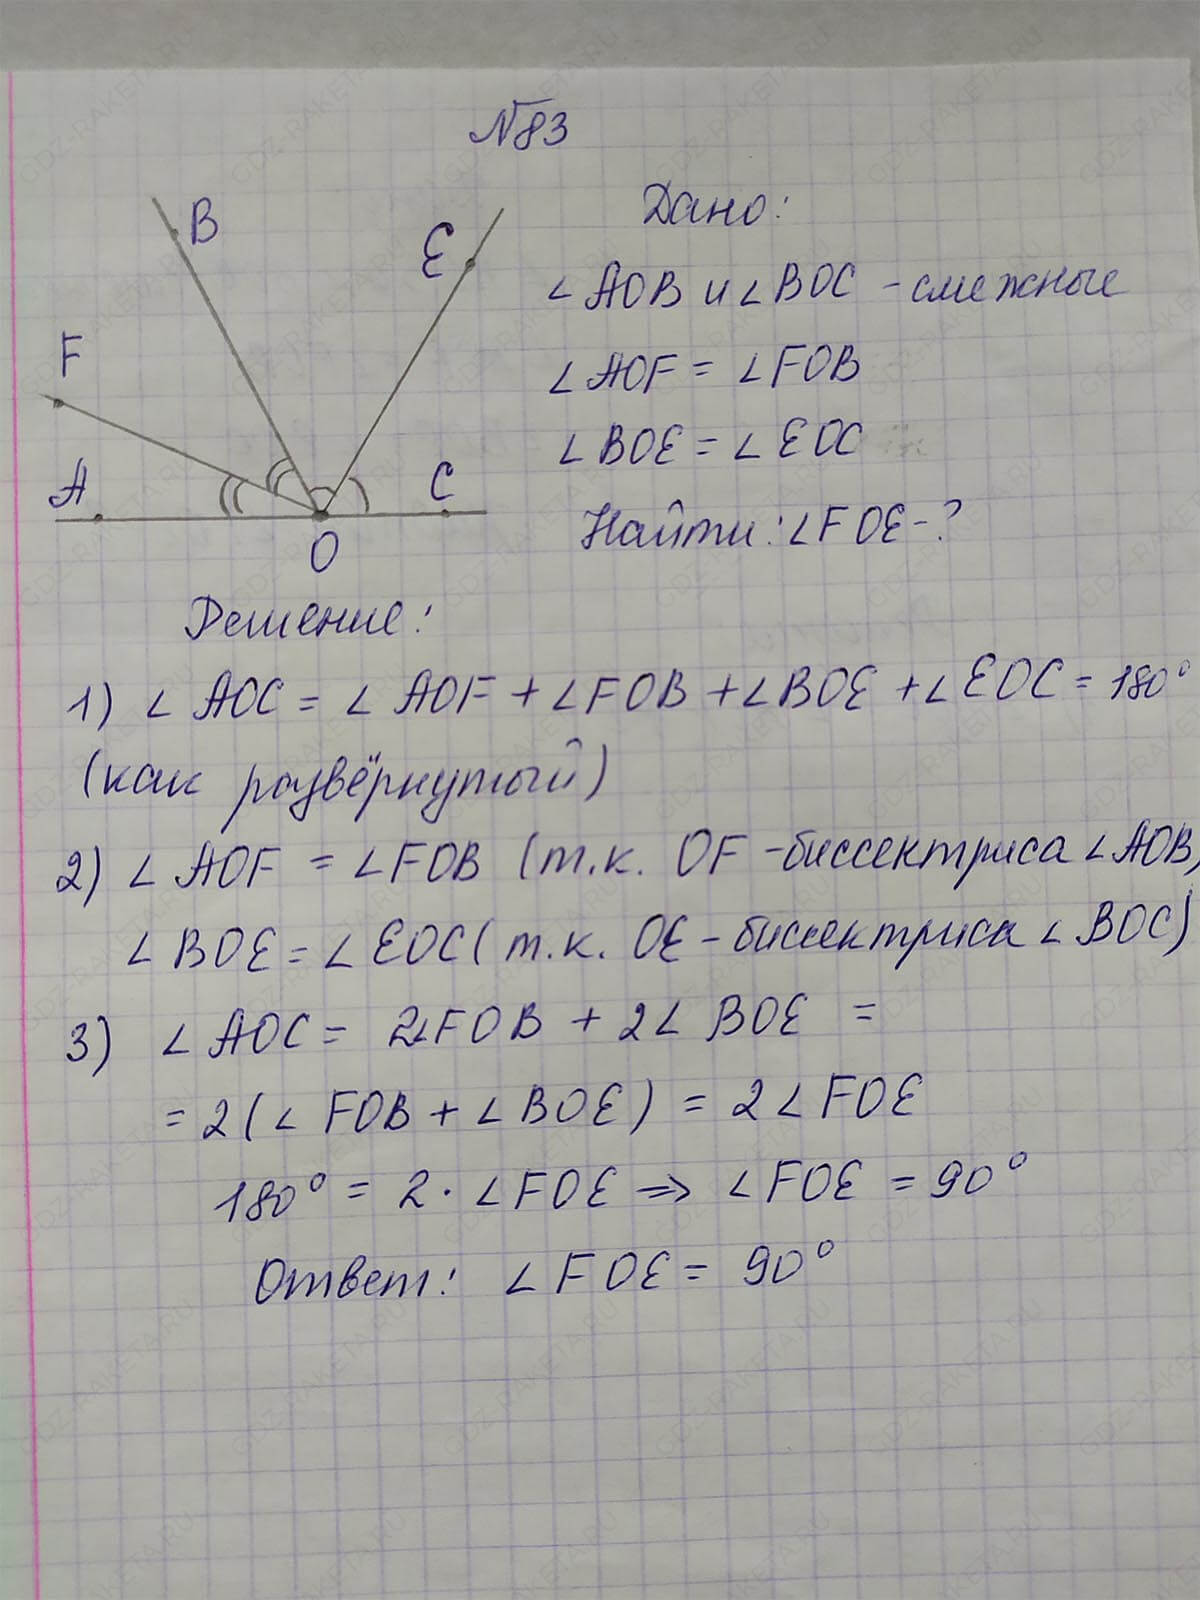 №83
B
E
F
A
C
O
Дано:
∠AOB и ∠BOC - смежные
∠AOF = ∠FOB
∠BOE = ∠EOC
Найти: ∠FOE - ?
Решение:
1) ∠AOC = ∠AOF + ∠FOB + ∠BOE + ∠EOC = 180°
(как развёрнутый)
2) ∠AOF = ∠FOB (т.к. OF - биссектриса ∠AOB,
∠BOE = ∠EOC (т.к. OE - биссектриса ∠BOC)
3) ∠AOC = 2∠FOB + 2∠BOE =
= 2(∠FOB + ∠BOE) = 2∠FOE
180° = 2 · ∠FOE ⇒ ∠FOE = 90°
Ответ: ∠FOE = 90°
GDZ-RAKETA.RU